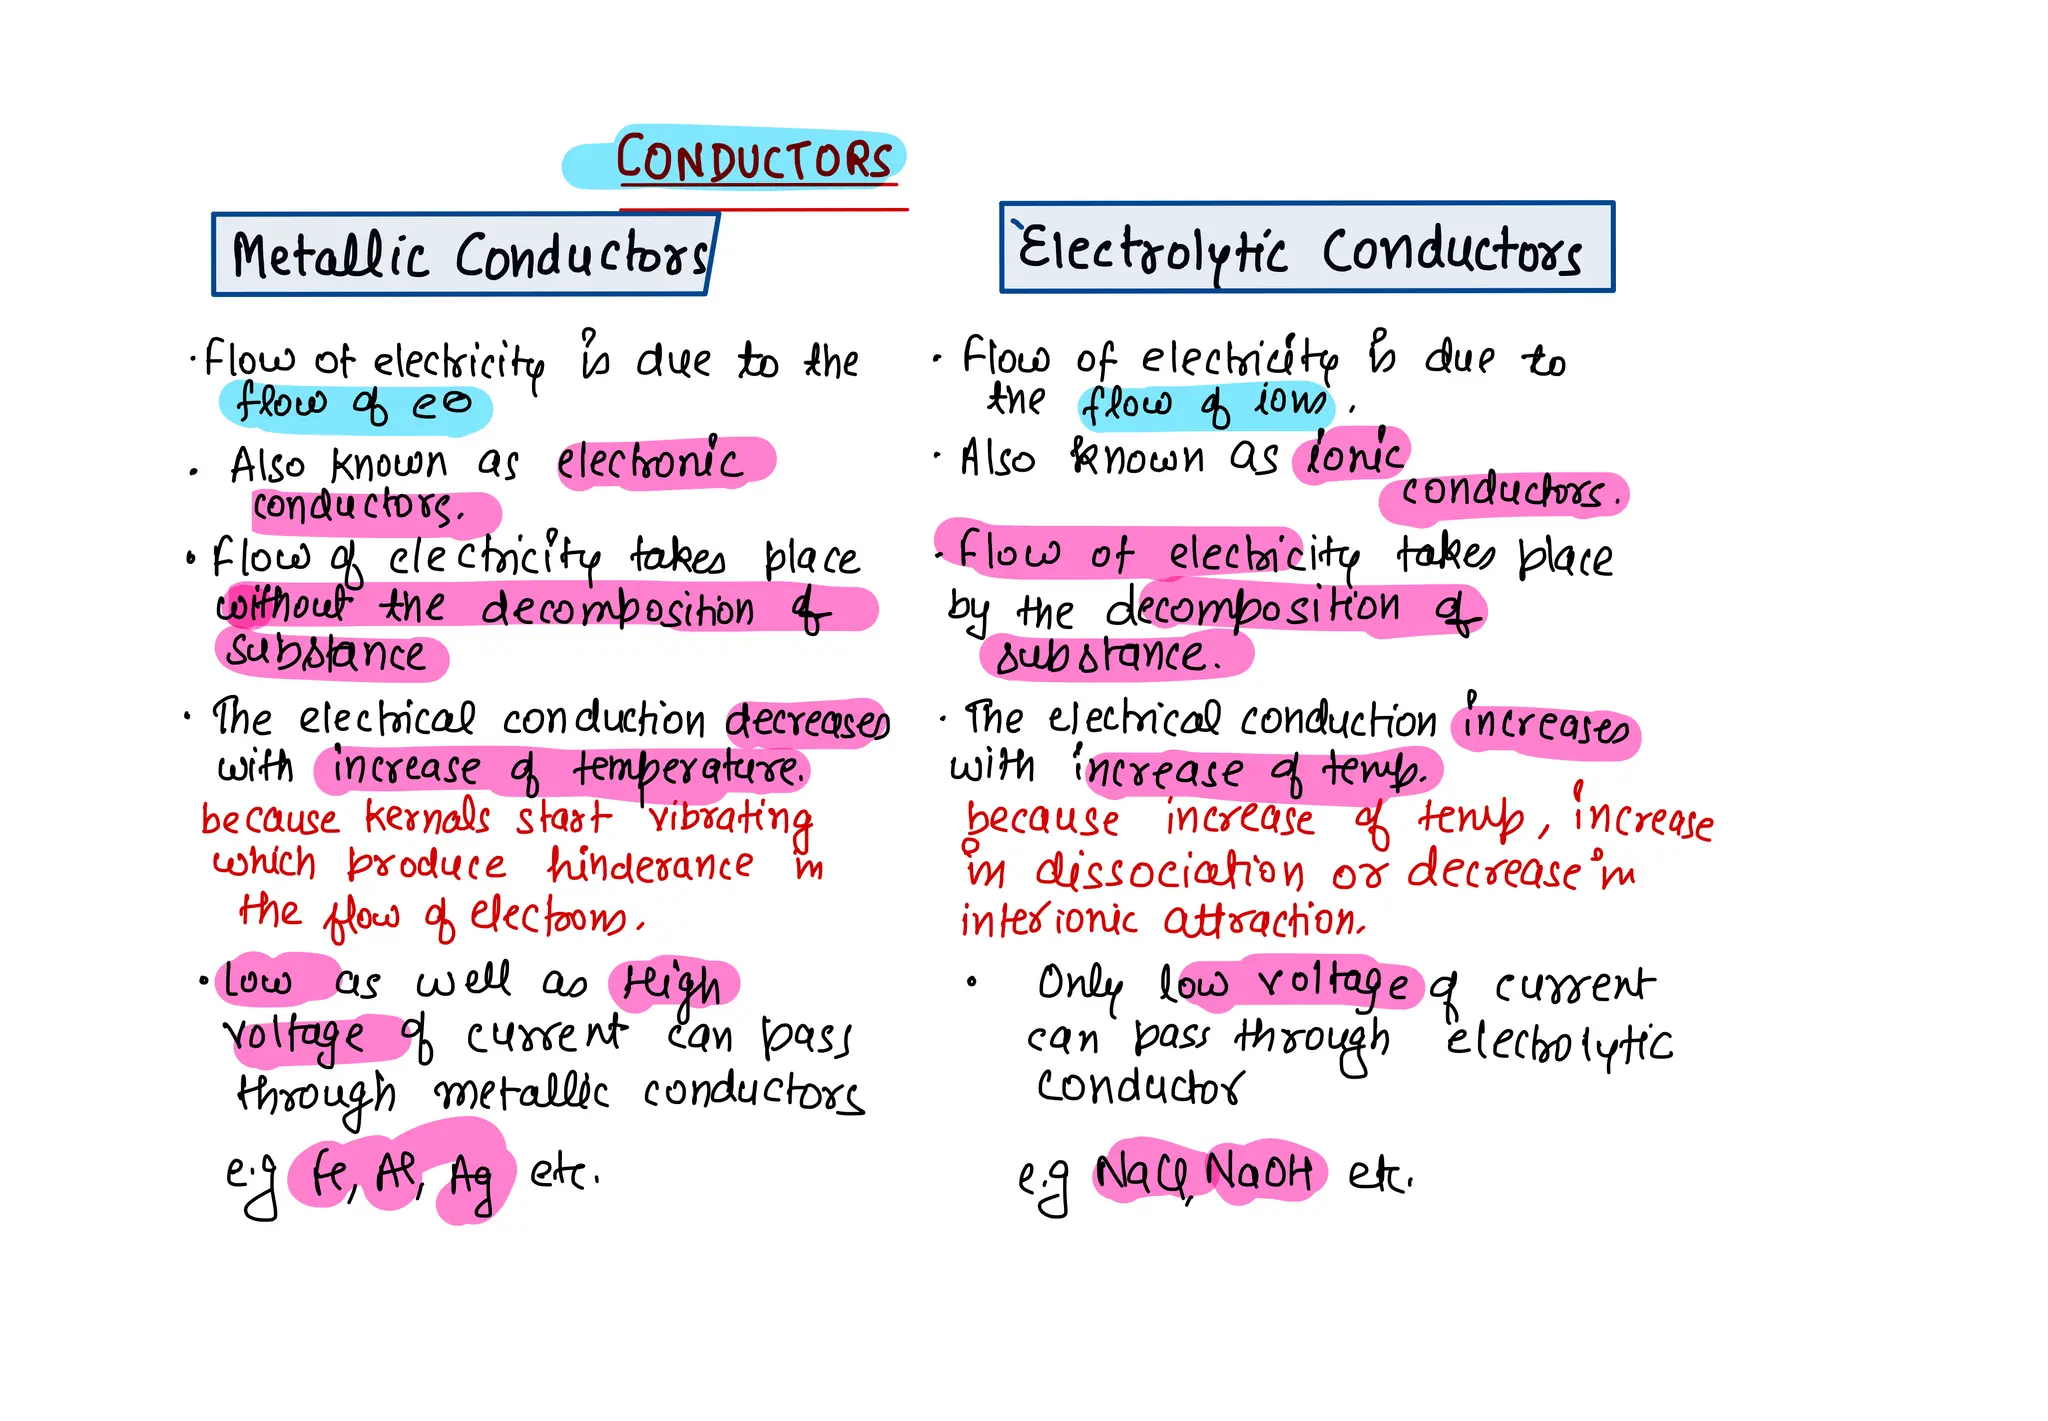 CONDUCTORS
Metallic Conductors
• Flow of electricity is due to the
flow of e⊖
• Also known as electronic
conductors.
• Flow of electricity takes place
without the decomposition of
substance
• The electrical conduction decreases
with increase of temperature.
because kernals start vibrating
which produce hinderance in
the flow of electrons.
• Low as well as High
voltage of current can pass
through metallic conductors
e.g Fe, Al, Ag etc.
Electrolytic Conductors
• Flow of electricity is due to
the flow of ions.
• Also known as ionic
conductors.
• Flow of electricity takes place
by the decomposition of
substance.
• The electrical conduction increases
with increase of temp.
because increase of temp, increase
in dissociation or decrease in
interionic attraction.
• Only low voltage of current
can pass through electrolytic
conductor
e.g NaCl, NaOH etc.